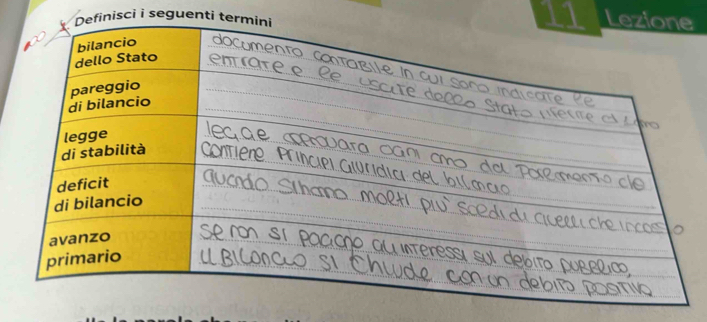 11 Lezione
Definisci i seguenti termini
bilancio
dello Stato
documento contabile in cui sono indicate le
entrate e le uscite dello Stato riferite a
pareggio
di bilancio
legge
di stabilità
legge approvata ogni ano dal Parlamento che
contiene principi giuridici del bilancio
deficit
di bilancio
quando si hanno molti più soldi di quelli che
avanzo
primario
se non si pagano gli interessi sul debito pubblico,
il bilancio si chiude con un debito positivo